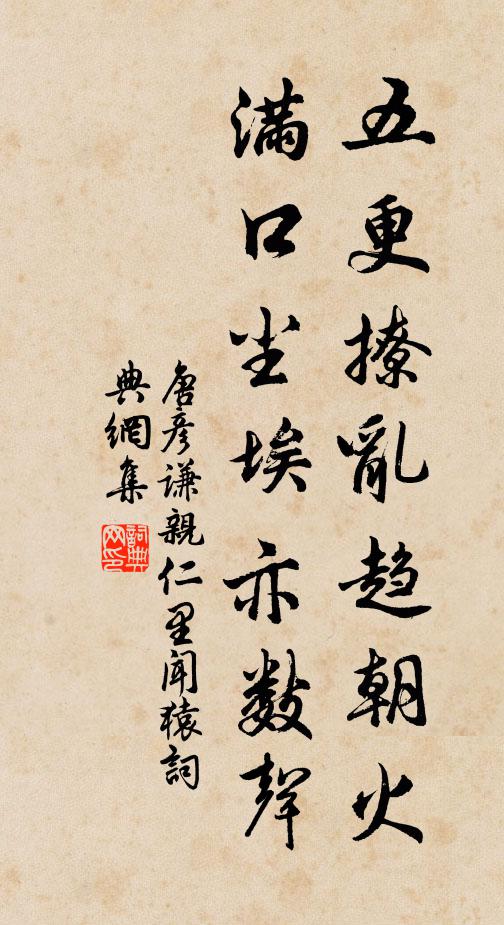 五更撩亂趨朝火
滿口尘埃亦數聲
唐彥謙親仁里聞猿詞
典網集
詞典網印